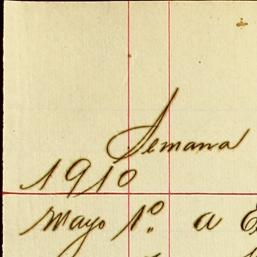 Semana
1910
Mayo 1º. a